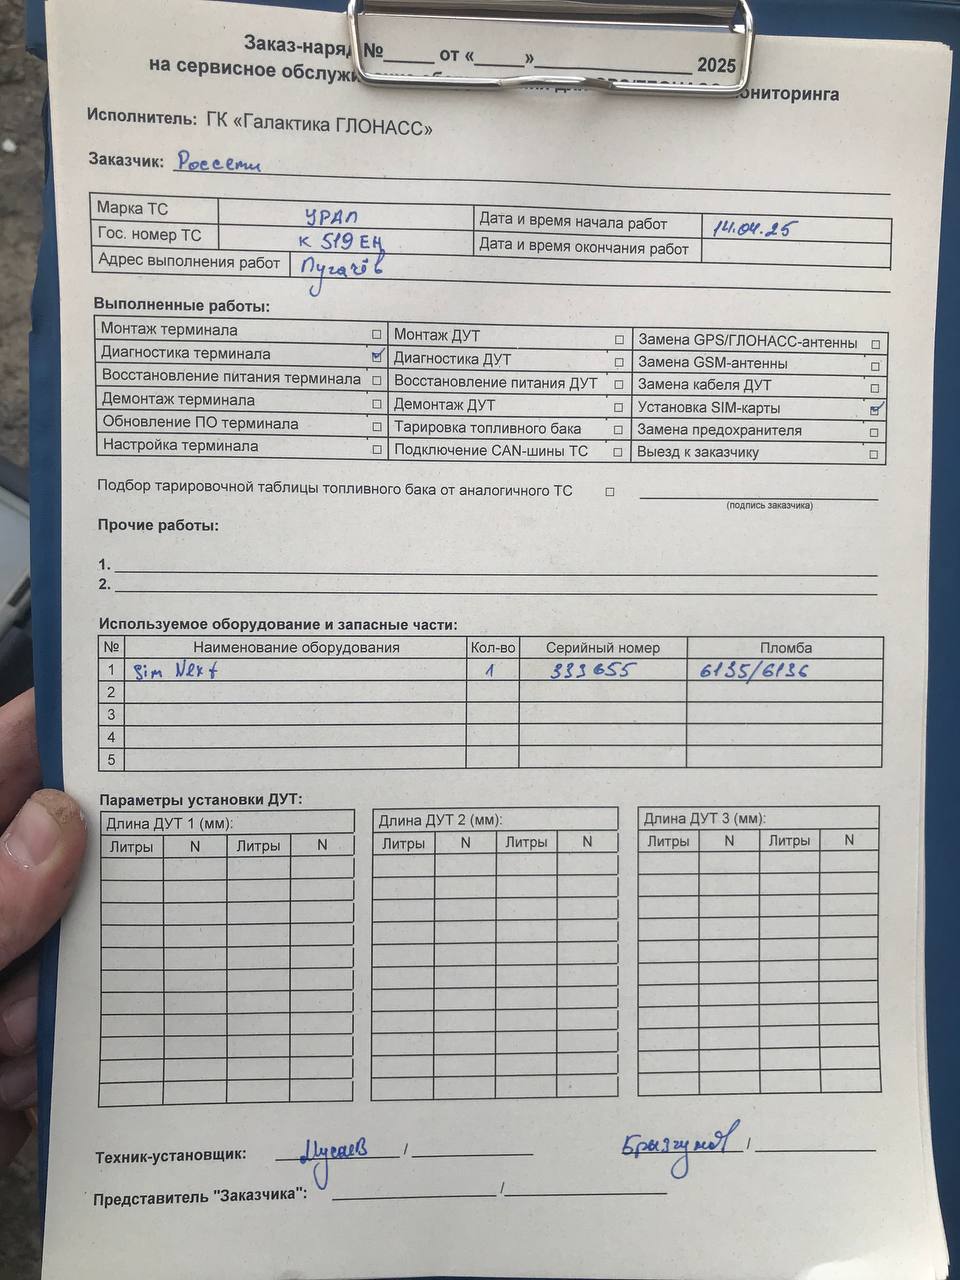 Заказ-наряд №_____ от «_____»__________________ 2025
на сервисное обслужи мониторинга
Исполнитель: ГК «Галактика ГЛОНАСС»
Заказчик: Россети
Марка ТС УРАЛ Дата и время начала работ 14.04.25
Гос. номер ТС К 519 ЕН Дата и время окончания работ
Адрес выполнения работ Пугачёв
Выполненные работы:
Монтаж терминала □ Монтаж ДУТ □ Замена GPS/ГЛОНАСС-антенны □
Диагностика терминала ☑ Диагностика ДУТ □ Замена GSM-антенны □
Восстановление питания терминала □ Восстановление питания ДУТ □ Замена кабеля ДУТ □
Демонтаж терминала □ Демонтаж ДУТ □ Установка SIM-карты ☑
Обновление ПО терминала □ Тарировка топливного бака □ Замена предохранителя □
Настройка терминала □ Подключение CAN-шины ТС □ Выезд к заказчику □
Подбор тарировочной таблицы топливного бака от аналогичного ТС □
(подпись заказчика)
Прочие работы:
1.
2.
Используемое оборудование и запасные части:
№ Наименование оборудования Кол-во Серийный номер Пломба
1 Sim Next 1 333655 6135/6136
2
3
4
5
Параметры установки ДУТ:
Длина ДУТ 1 (мм): Длина ДУТ 2 (мм): Длина ДУТ 3 (мм):
Литры N Литры N Литры N Литры N Литры N Литры N
Техник-установщик: Мусаев / Брызгунов /
Представитель "Заказчика": /